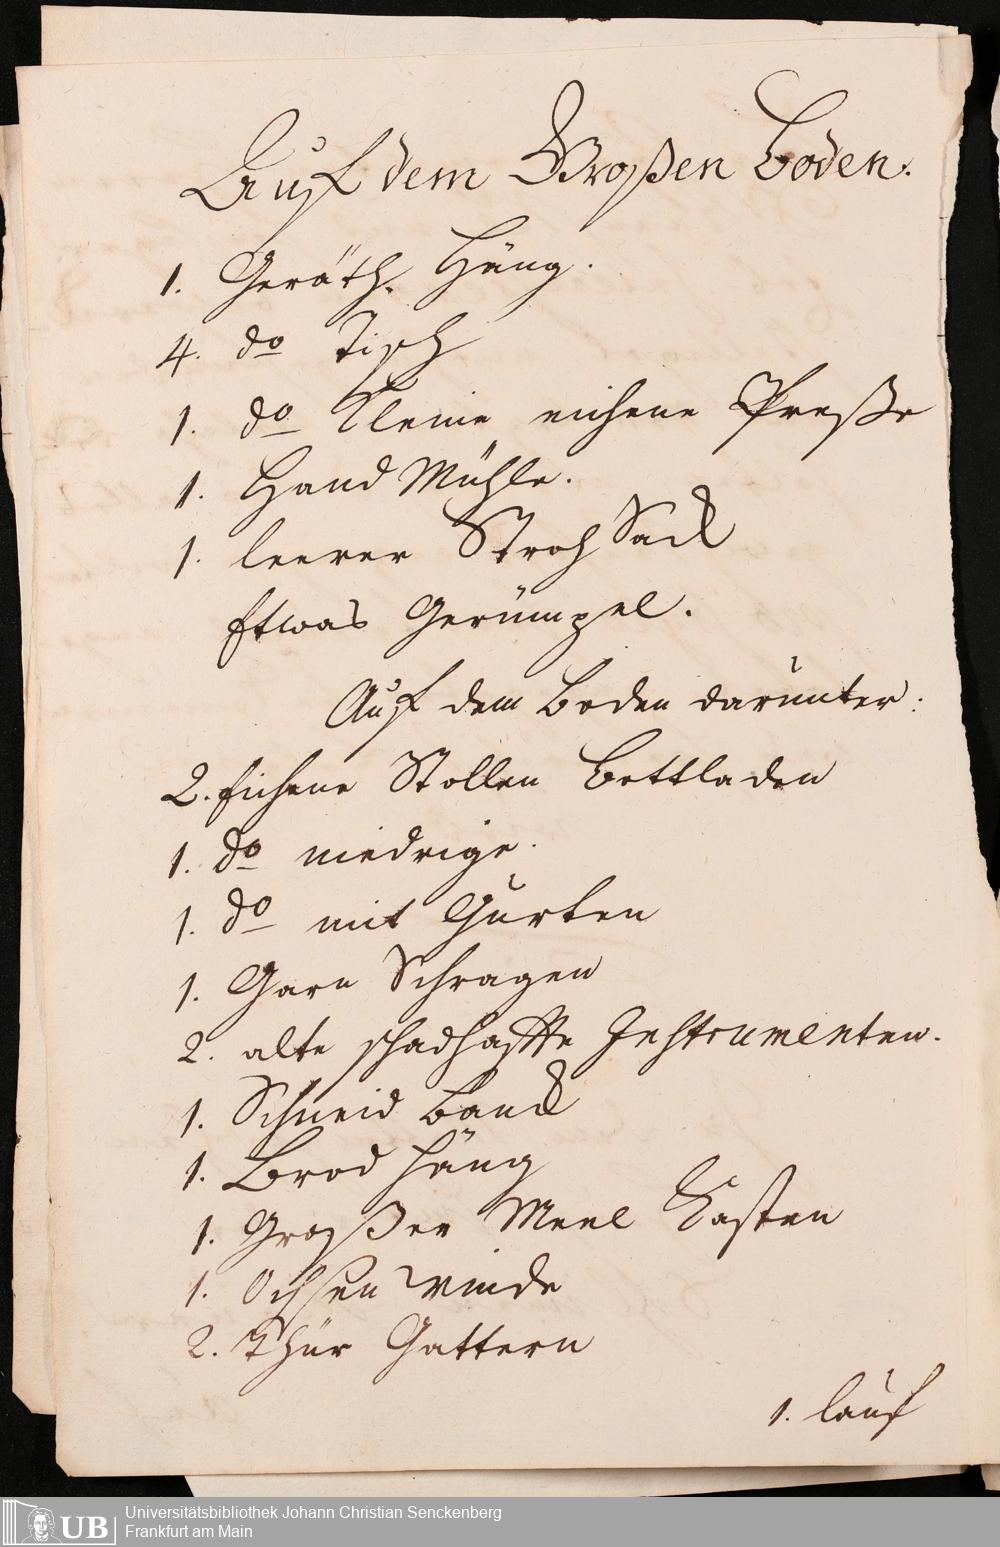 Auf dem Großen Boden.
1. Geräth. Häng.
4. do Tisch
1. do kleine eichene Preße
1. Hand Mühle.
1. leerer Stroh Sack
Etwas Gerümpel.
Auf dem Boden darunter:
2. Eichene Stollen Bettladen
1. do niedrige.
1. do mit Gurten
1. Garn Schragen
2. alte schadhaffte Instrumenten.
1. Schneid Banck
1. Brod häng
1. Großer Meel Kasten
1. Ochsen winde
2. Thür Gattern
1. lauf
UB Universitätsbibliothek Johann Christian Senckenberg
Frankfurt am Main